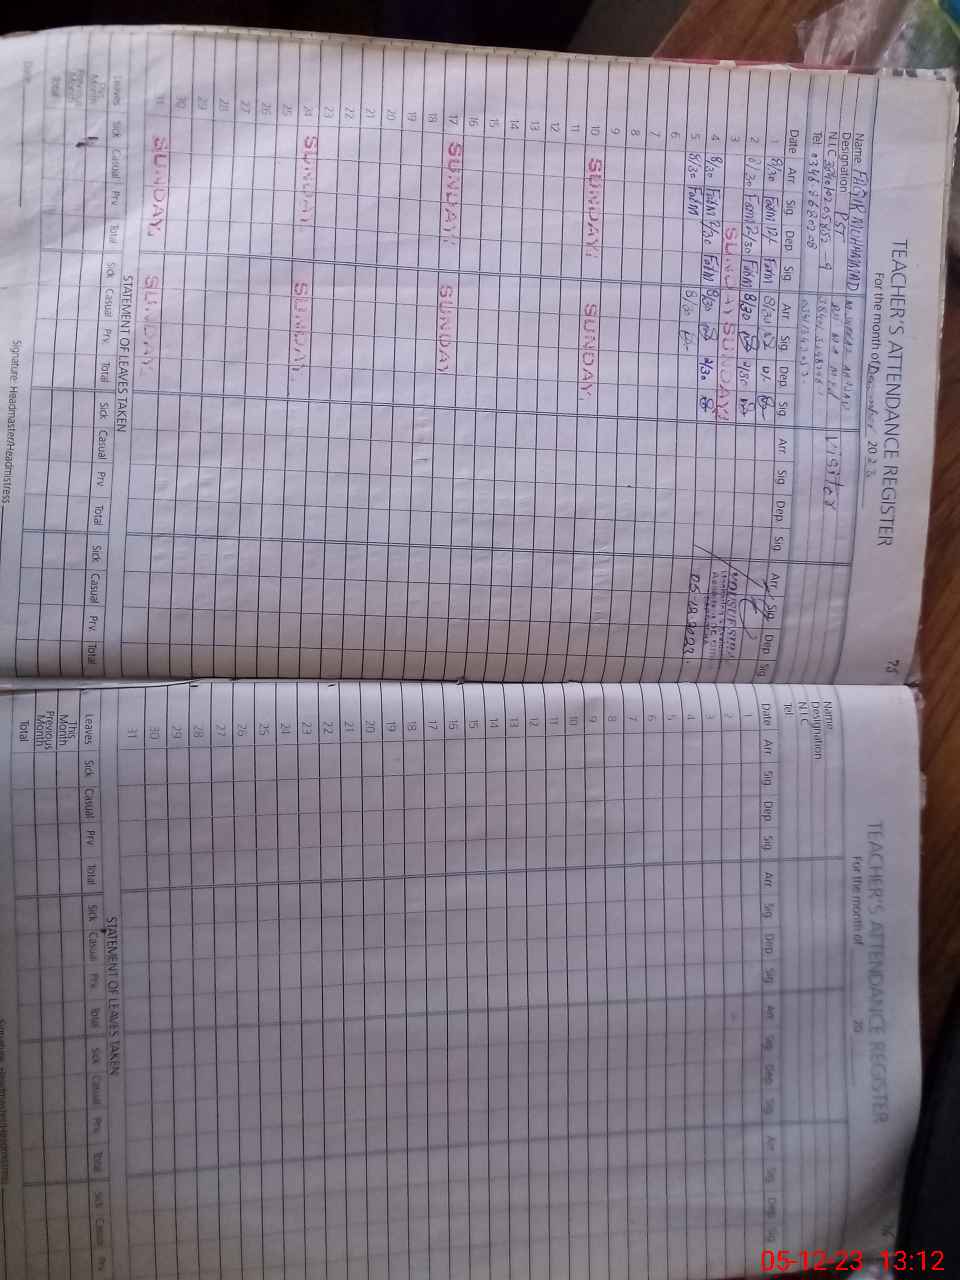 TEACHER'S ATTENDANCE REGISTER
75
For the month of December 2023
Name FAQIR MUHAMMAD
Designation PST
N.I.C
Tel
Visitor
Date Arr. Sig. Dep. Sig. Arr. Sig. Dep. Sig. Arr. Sig. Dep. Sig. Arr. Sig. Dep. Sig.
1 8/30
2 8/30 12/30 8/30
3 SUNDAY SUNDAY
4 8/30 8/30 2/30
5 8/30 8/30
05.12.2023.
6
7
8
9
10 SUNDAY. SUNDAY.
11
12
13
14
15
16
17 SUNDAY. SUNDAY
18
19
20
21
22
23
24 SUNDAY. SUNDAY.
25
26
27
28
29
30
31 SUNDAY. SUNDAY.
STATEMENT OF LEAVES TAKEN
Leaves Sick Casual Prv. Total Sick Casual Prv. Total Sick Casual Prv. Total Sick Casual Prv. Total
This Month
Previous Month
Total
Date
Signature: Headmaster/Headmistress
TEACHER'S ATTENDANCE REGISTER
76
For the month of 20
Name
Designation
N.I.C
Tel
Date Arr. Sig. Dep. Sig. Arr. Sig. Dep. Sig. Arr. Sig. Dep. Sig. Arr. Sig. Dep. Sig.
1
2
3
4
5
6
7
8
9
10
11
12
13
14
15
16
17
18
19
20
21
22
23
24
25
26
27
28
29
30
31
STATEMENT OF LEAVES TAKEN
Leaves Sick Casual Prv. Total Sick Casual Prv. Total Sick Casual Prv. Total Sick Casual Prv.
This Month
Previous Month
Total
Signature: Headmaster/Headmistress
05-12-23 13:12